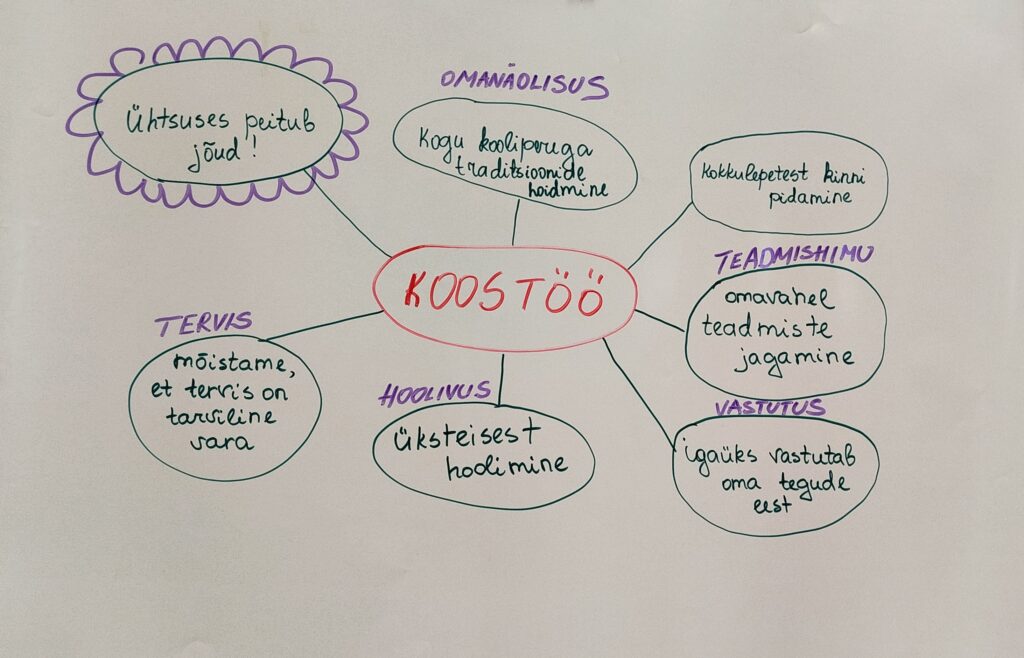 Ühtsuses peitub
jõud!
OMANÄOLISUS
Kogu kooliperega
traditsioonide
hoidmine
Kokkulepetest kinni
pidamine
KOOSTÖÖ
TEADMISHIMU
omavahel
teadmiste
jagamine
TERVIS
mõistame,
et tervis on
tarviline
vara
HOOLIVUS
üksteisest
hoolimine
VASTUTUS
igaüks vastutab
oma tegude
eest